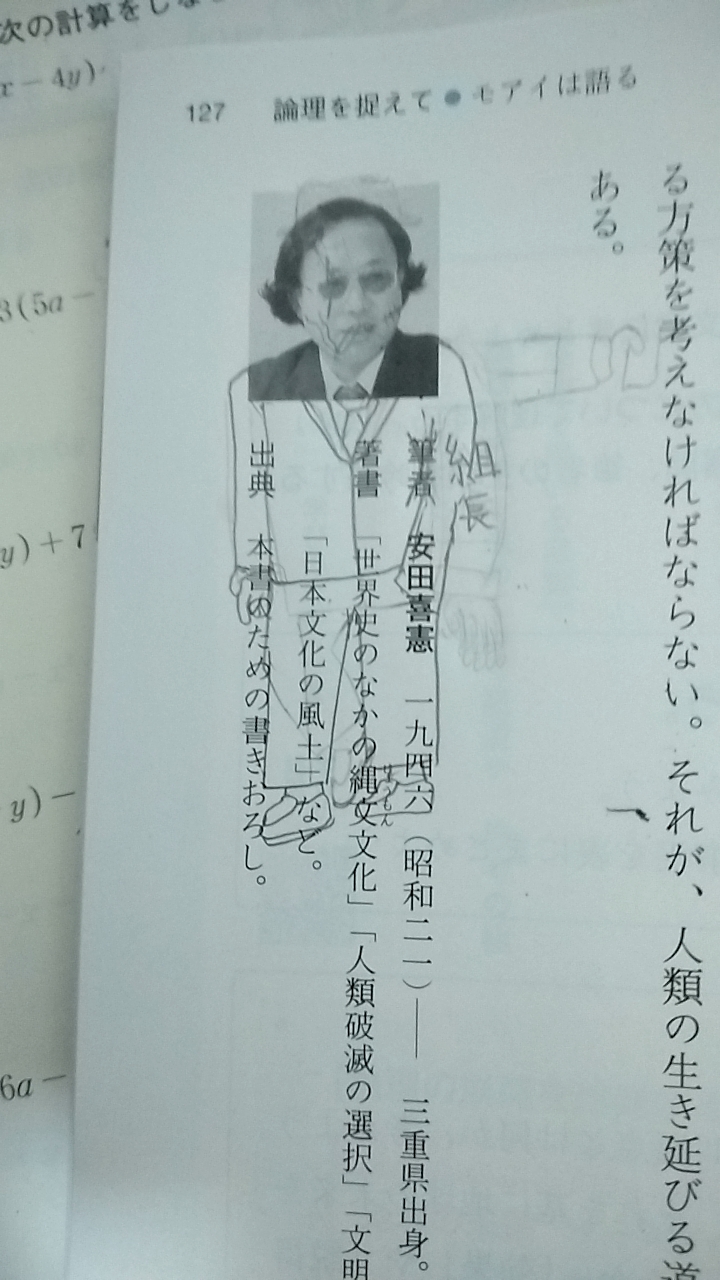 次の計算をしな
x－4y)
3(5a－
y)＋7
y)－
6a－
127　論理を捉えて●モアイは語る
る方策を考えなければならない。それが、人類の生き延びる道
ある。
組長
筆者　安田喜憲　一九四六（昭和二一）——　三重県出身。
著書　「世界史のなかの縄文文化」「人類破滅の選択」「文明
じょうもん
「日本文化の風土」など。
出典　本書のための書きおろし。